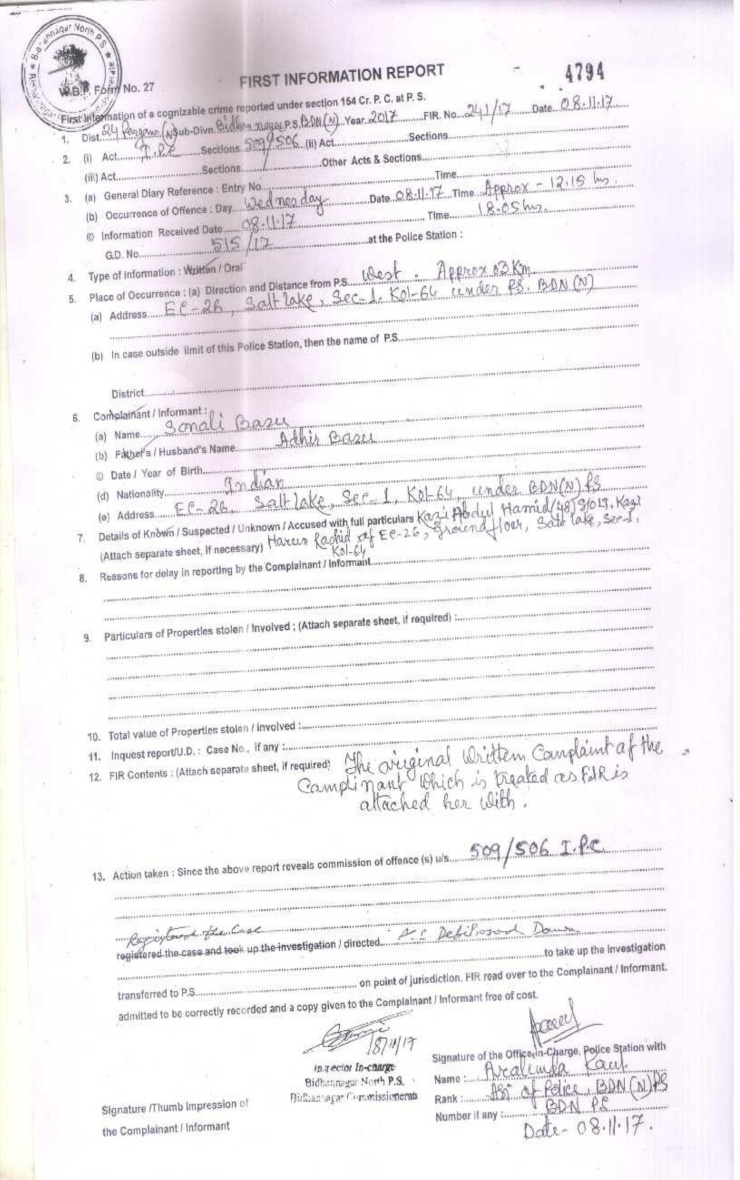 Bidhannagar North P.S.
FIRST INFORMATION REPORT
4794
W.B.P. Form No. 27
First Information of a cognizable crime reported under section 154 Cr. P. C. at P. S.
1. Dist 24 Parganas (N) Sub-Divn. Bidhan nagar P.S. BDN (N) Year 2017 FIR. No. 241/17 Date 08.11.17
2. (i) Act I.P.C Sections 509/506 (ii) Act Sections
(iii) Act Sections Other Acts & Sections
3. (a) General Diary Reference : Entry No Time
(b) Occurrence of Offence : Day Wednesday Date 08.11.17 Time Approx - 12.15 hrs.
© Information Received Date 08.11.17 Time 18.05 hrs.
G.D. No. 515/17 at the Police Station :
4. Type of information : Written / Oral
5. Place of Occurrence : (a) Direction and Distance from P.S. West. Approx 03 Km
(a) Address EC-26, Salt lake, Sec-1, Kol-64 under PS. BDN (N)
(b) In case outside limit of this Police Station, then the name of P.S.
District
6. Complainant / Informant :
(a) Name Sonali Basu
(b) Father's / Husband's Name Adhir Basu
© Date / Year of Birth
(d) Nationality Indian
(e) Address EC-26, Salt lake, Sec-1, Kol-64, under BDN(N) PS
7. Details of Known / Suspected / Unknown / Accused with full particulars Kazi Abdul Hamid (48) S/o Lt. Kazi
(Attach separate sheet, if necessary) Harun Rashid of EC-26, Ground floor, Salt lake, Sec-1,
Kol-64
8. Reasons for delay in reporting by the Complainant / Informant
9. Particulars of Properties stolen / Involved ; (Attach separate sheet, if required) :
10. Total value of Properties stolen / Involved :
11. Inquest report/U.D. : Case No., if any :
12. FIR Contents : (Attach separate sheet, if required) The original Written Complaint of the
Complinant which is treated as FIR is
attached her with.
13. Action taken : Since the above report reveals commission of offence (s) u/s 509/506 I.P.C
Registered the Case
registered the case and took up the investigation / directed
to take up the investigation
transferred to P.S. on point of jurisdiction. FIR read over to the Complainant / Informant.
admitted to be correctly recorded and a copy given to the Complainant / Informant free of cost.
8/11/17
Inspector In-charge
Bidhannagar North P.S.
Bidhannagar Commissionerate
Signature of the Officer-in-Charge, Police Station with
Name :
Rank : ASI of Police, BDN (N) PS
Number if any : BDN PS
Date - 08.11.17.
Signature /Thumb Impression of
the Complainant / Informant